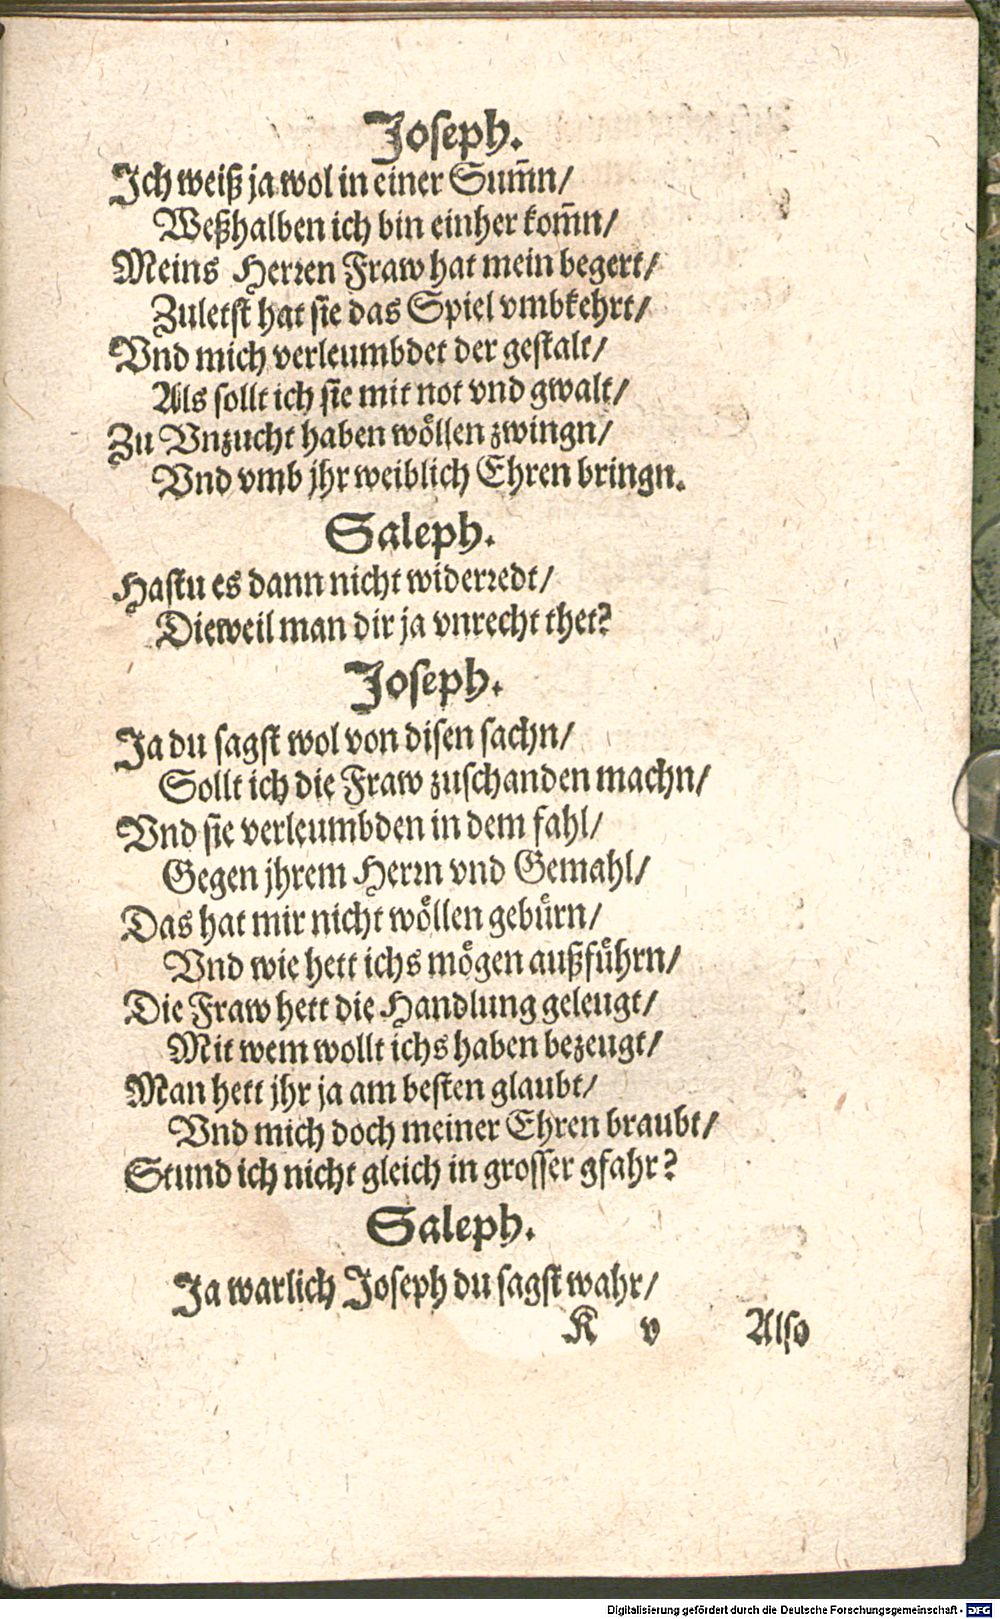 Joseph.
Ich weiß ja wol in einer Sum̄n/
Weßhalben ich bin einher kom̄n/
Meins Herren Fraw hat mein begert/
Zuletst hat sie das Spiel vmbkehrt/
Vnd mich verleumbdet der gestalt/
Als sollt ich sie mit not vnd gwalt/
Zu Vnzucht haben wöllen zwingn/
Vnd vmb jhr weiblich Ehren bringn.
Saleph.
Hastu es dann nicht widerredt/
Dieweil man dir ja vnrecht thet?
Joseph.
Ja du sagst wol von disen sachn/
Sollt ich die Fraw zuschanden machn/
Vnd sie verleumbden in dem fahl/
Gegen jhrem Herrn vnd Gemahl/
Das hat mir nicht wöllen gebürn/
Vnd wie hett ichs mögen außführn/
Die Fraw hett die Handlung geleugt/
Mit wem wollt ichs haben bezeugt/
Man hett jhr ja am besten glaubt/
Vnd mich doch meiner Ehren braubt/
Stund ich nicht gleich in grosser gfahr?
Saleph.
Ja warlich Joseph du sagst wahr/
K v Also
Digitalisierung gefördert durch die Deutsche Forschungsgemeinschaft - DFG